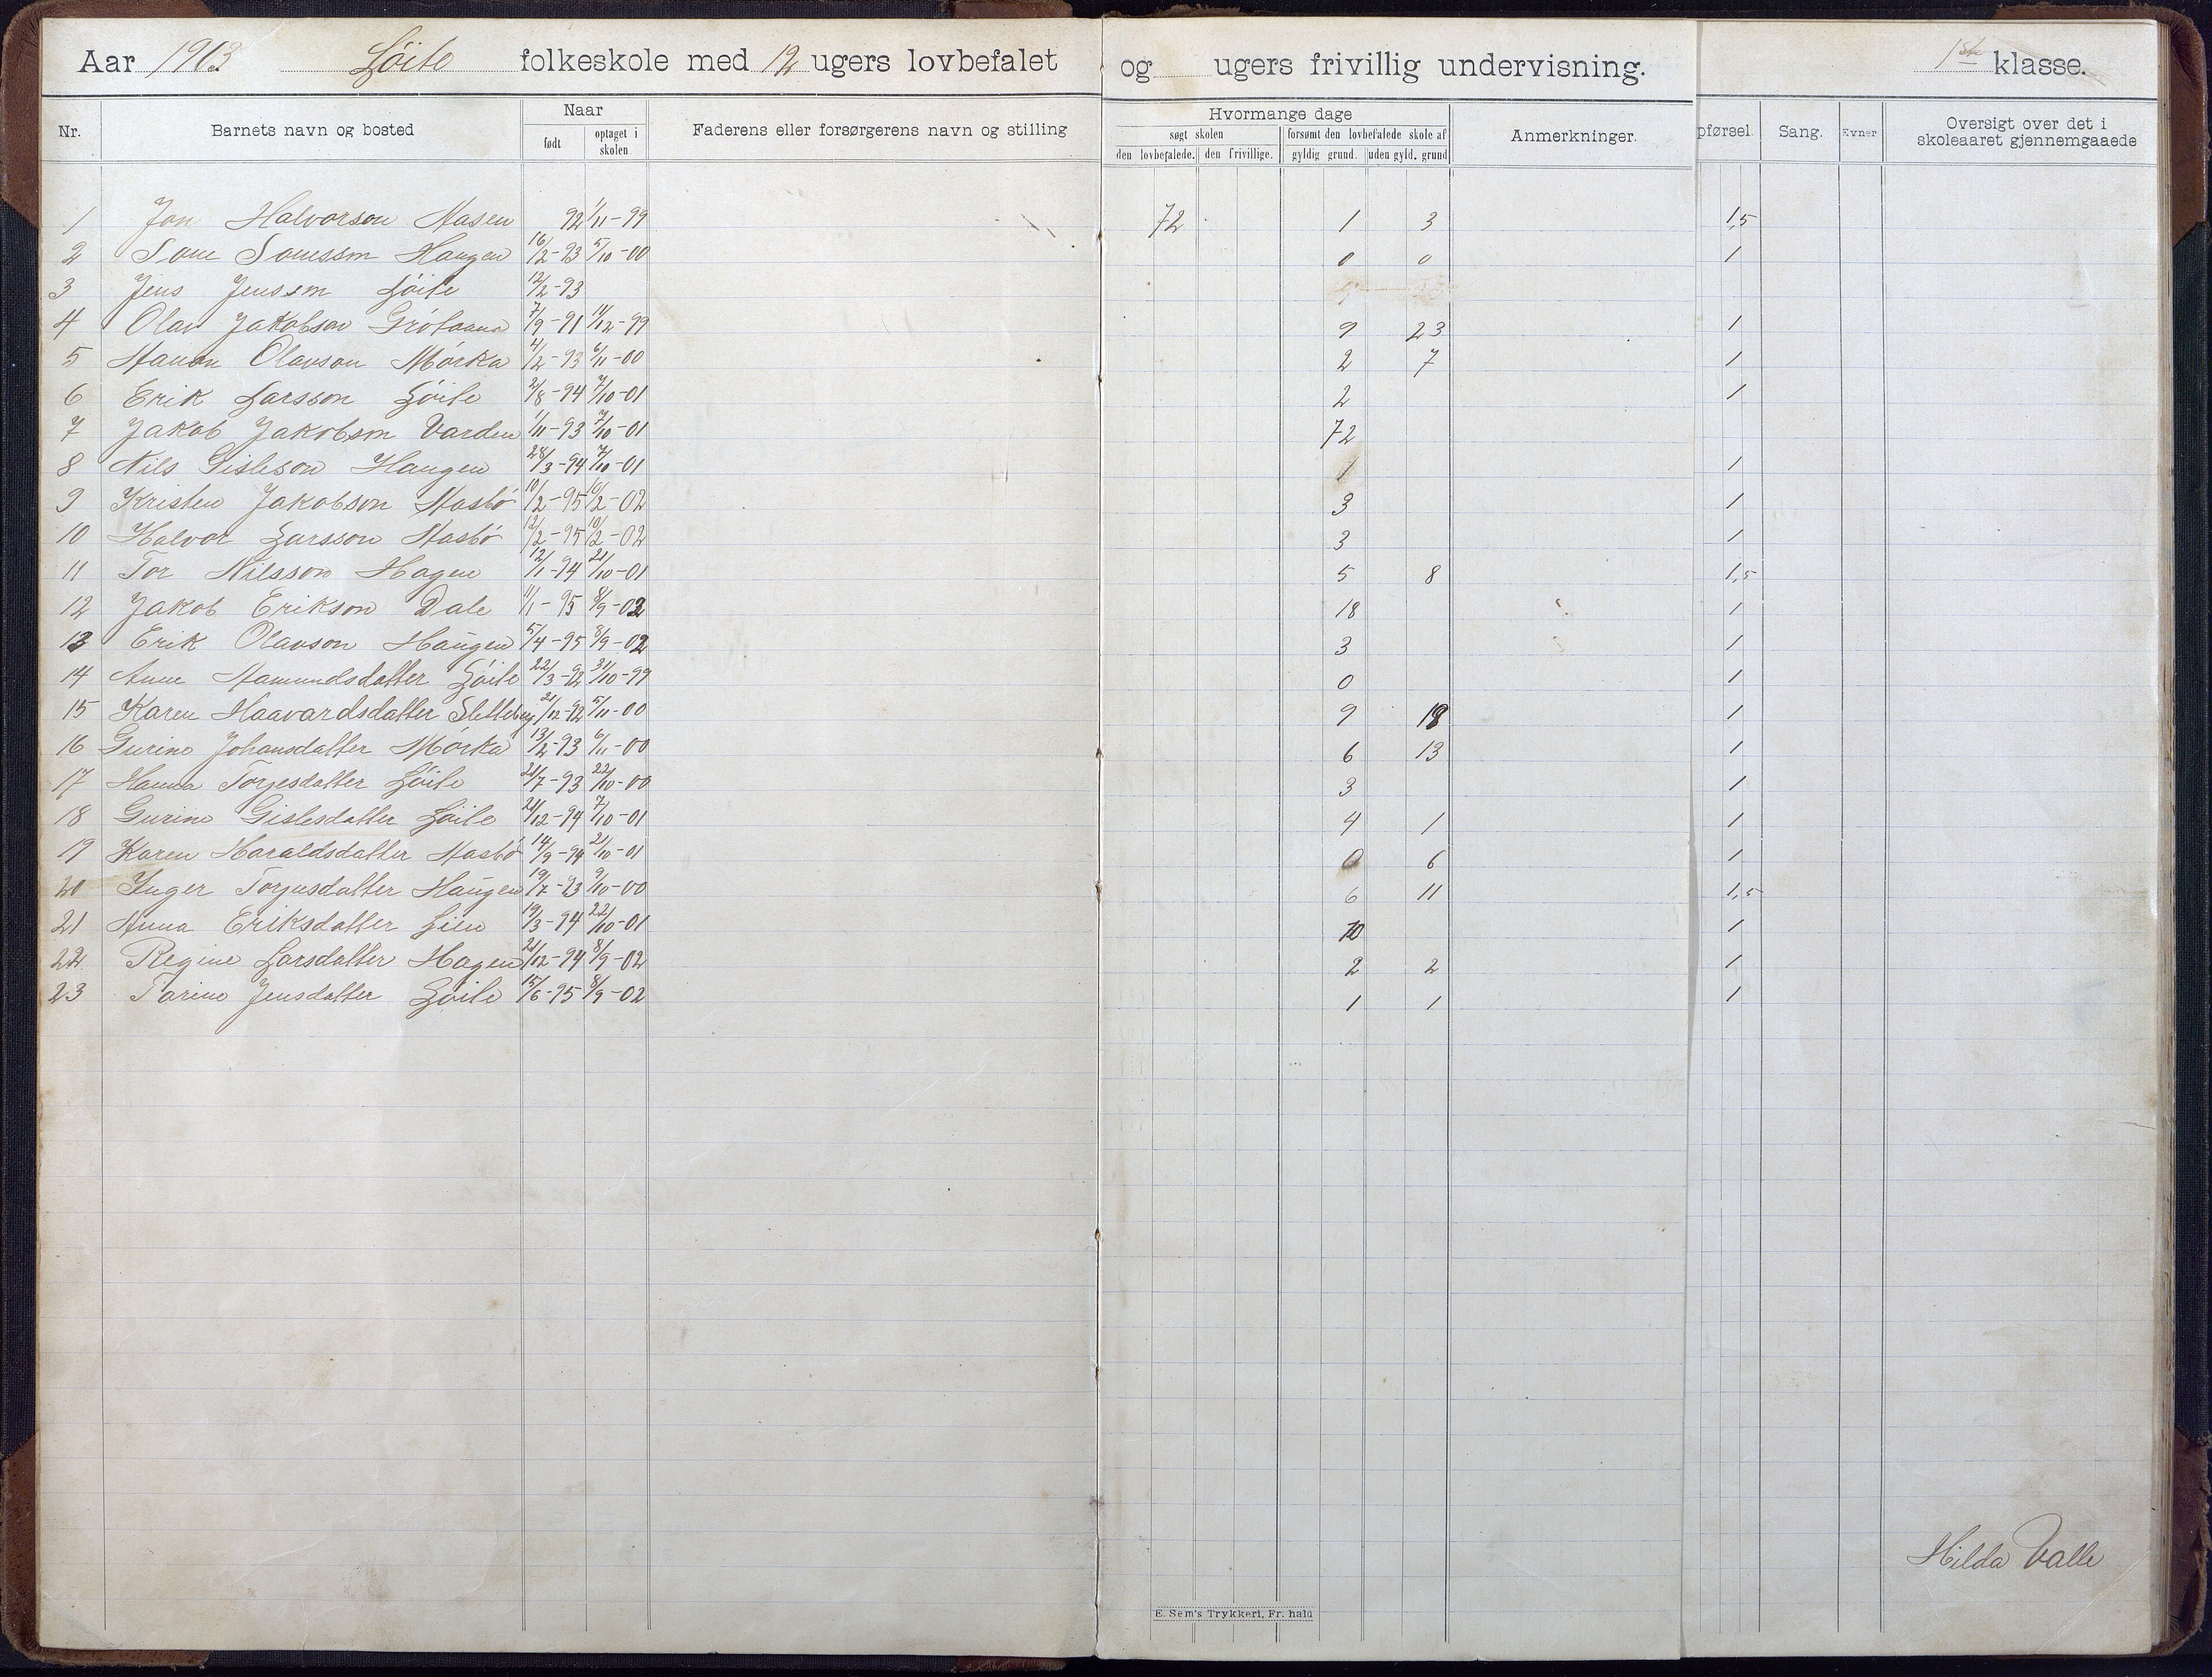 Aar 1903 Löite folkeskole med 12 ugers lovbefalet og ugers frivillig undervisning. 1ste klasse.
Nr. Barnets navn og bosted Naar født optaget i skolen. Faderens eller forsørgerens navn og stilling
Hvormange dage
søgt skolen forsømt den lovbefalede skole af
den lovbefalede. den frivillige. gyldig grund. uden gyld. grund Anmerkninger. pførsel. Sang. Evner Oversigt over det i skoleaaret gjennemgaaede
1 Jon Halvorson Aasen 92 1/11-99 72 1 3 1,5
2 Haugen 16/2-93 5/10-00 0 0 1
3 Jens Jensson Löite 12/2-93
4 Olav Jakobson 7/9-91 11/12-99 9 23 1
5 Olavson Mörka 4/2-93 6/11-00 2 7 1
6 Erik Larsson Löite 2/8-94 7/10-01 2 1
7 Jakob Jakobson Varden 1/11-93 7/10-01 72
8 Nils Gisleson Haugen 28/3-94 7/10-01 1 1
9 Kristen Jakobson Aasbö 10/2-95 10/2-02 3 1
10 Halvor Larsson Aasbö 12/2-95 10/2-02 3 1
11 Tor Nilsson Hagen 12/1-94 21/10-01 5 8 1,5
12 Jakob Erikson Dale 11/1-95 8/9-02 18 1
13 Erik Olavson Haugen 5/4-95 8/9-02 3 1
14 Anne Aamundsdatter Löite 22/3-92 31/10-99 0 1
15 Karen Haavardsdatter Sletteberg 21/12-92 5/11-00 9 18 1
16 Gurine Johansdatter Mörka 13/2-93 6/11-00 6 13 1
17 Hanna Torjesdatter Löite 21/7-93 22/10-00 3 1
18 Gurine Gislesdatter Löite 21/12-94 7/10-01 4 1 1
19 Karen Haraldsdatter Aasbö 14/9-94 21/10-01 0 6 1
20 Inger Torjusdatter Haugen 19/7-93 9/10-00 6 11 1,5
21 Anna Eriksdatter Lien 19/3-94 22/10-01 10 1
22 Regine Larsdatter Hagen 21/12-94 8/9-02 2 2 1
23 Tarine Jensdatter Löite 15/6-95 8/9-02 1 1 1
Hilda Valle
E. Sem's Trykkeri, Fr. hald